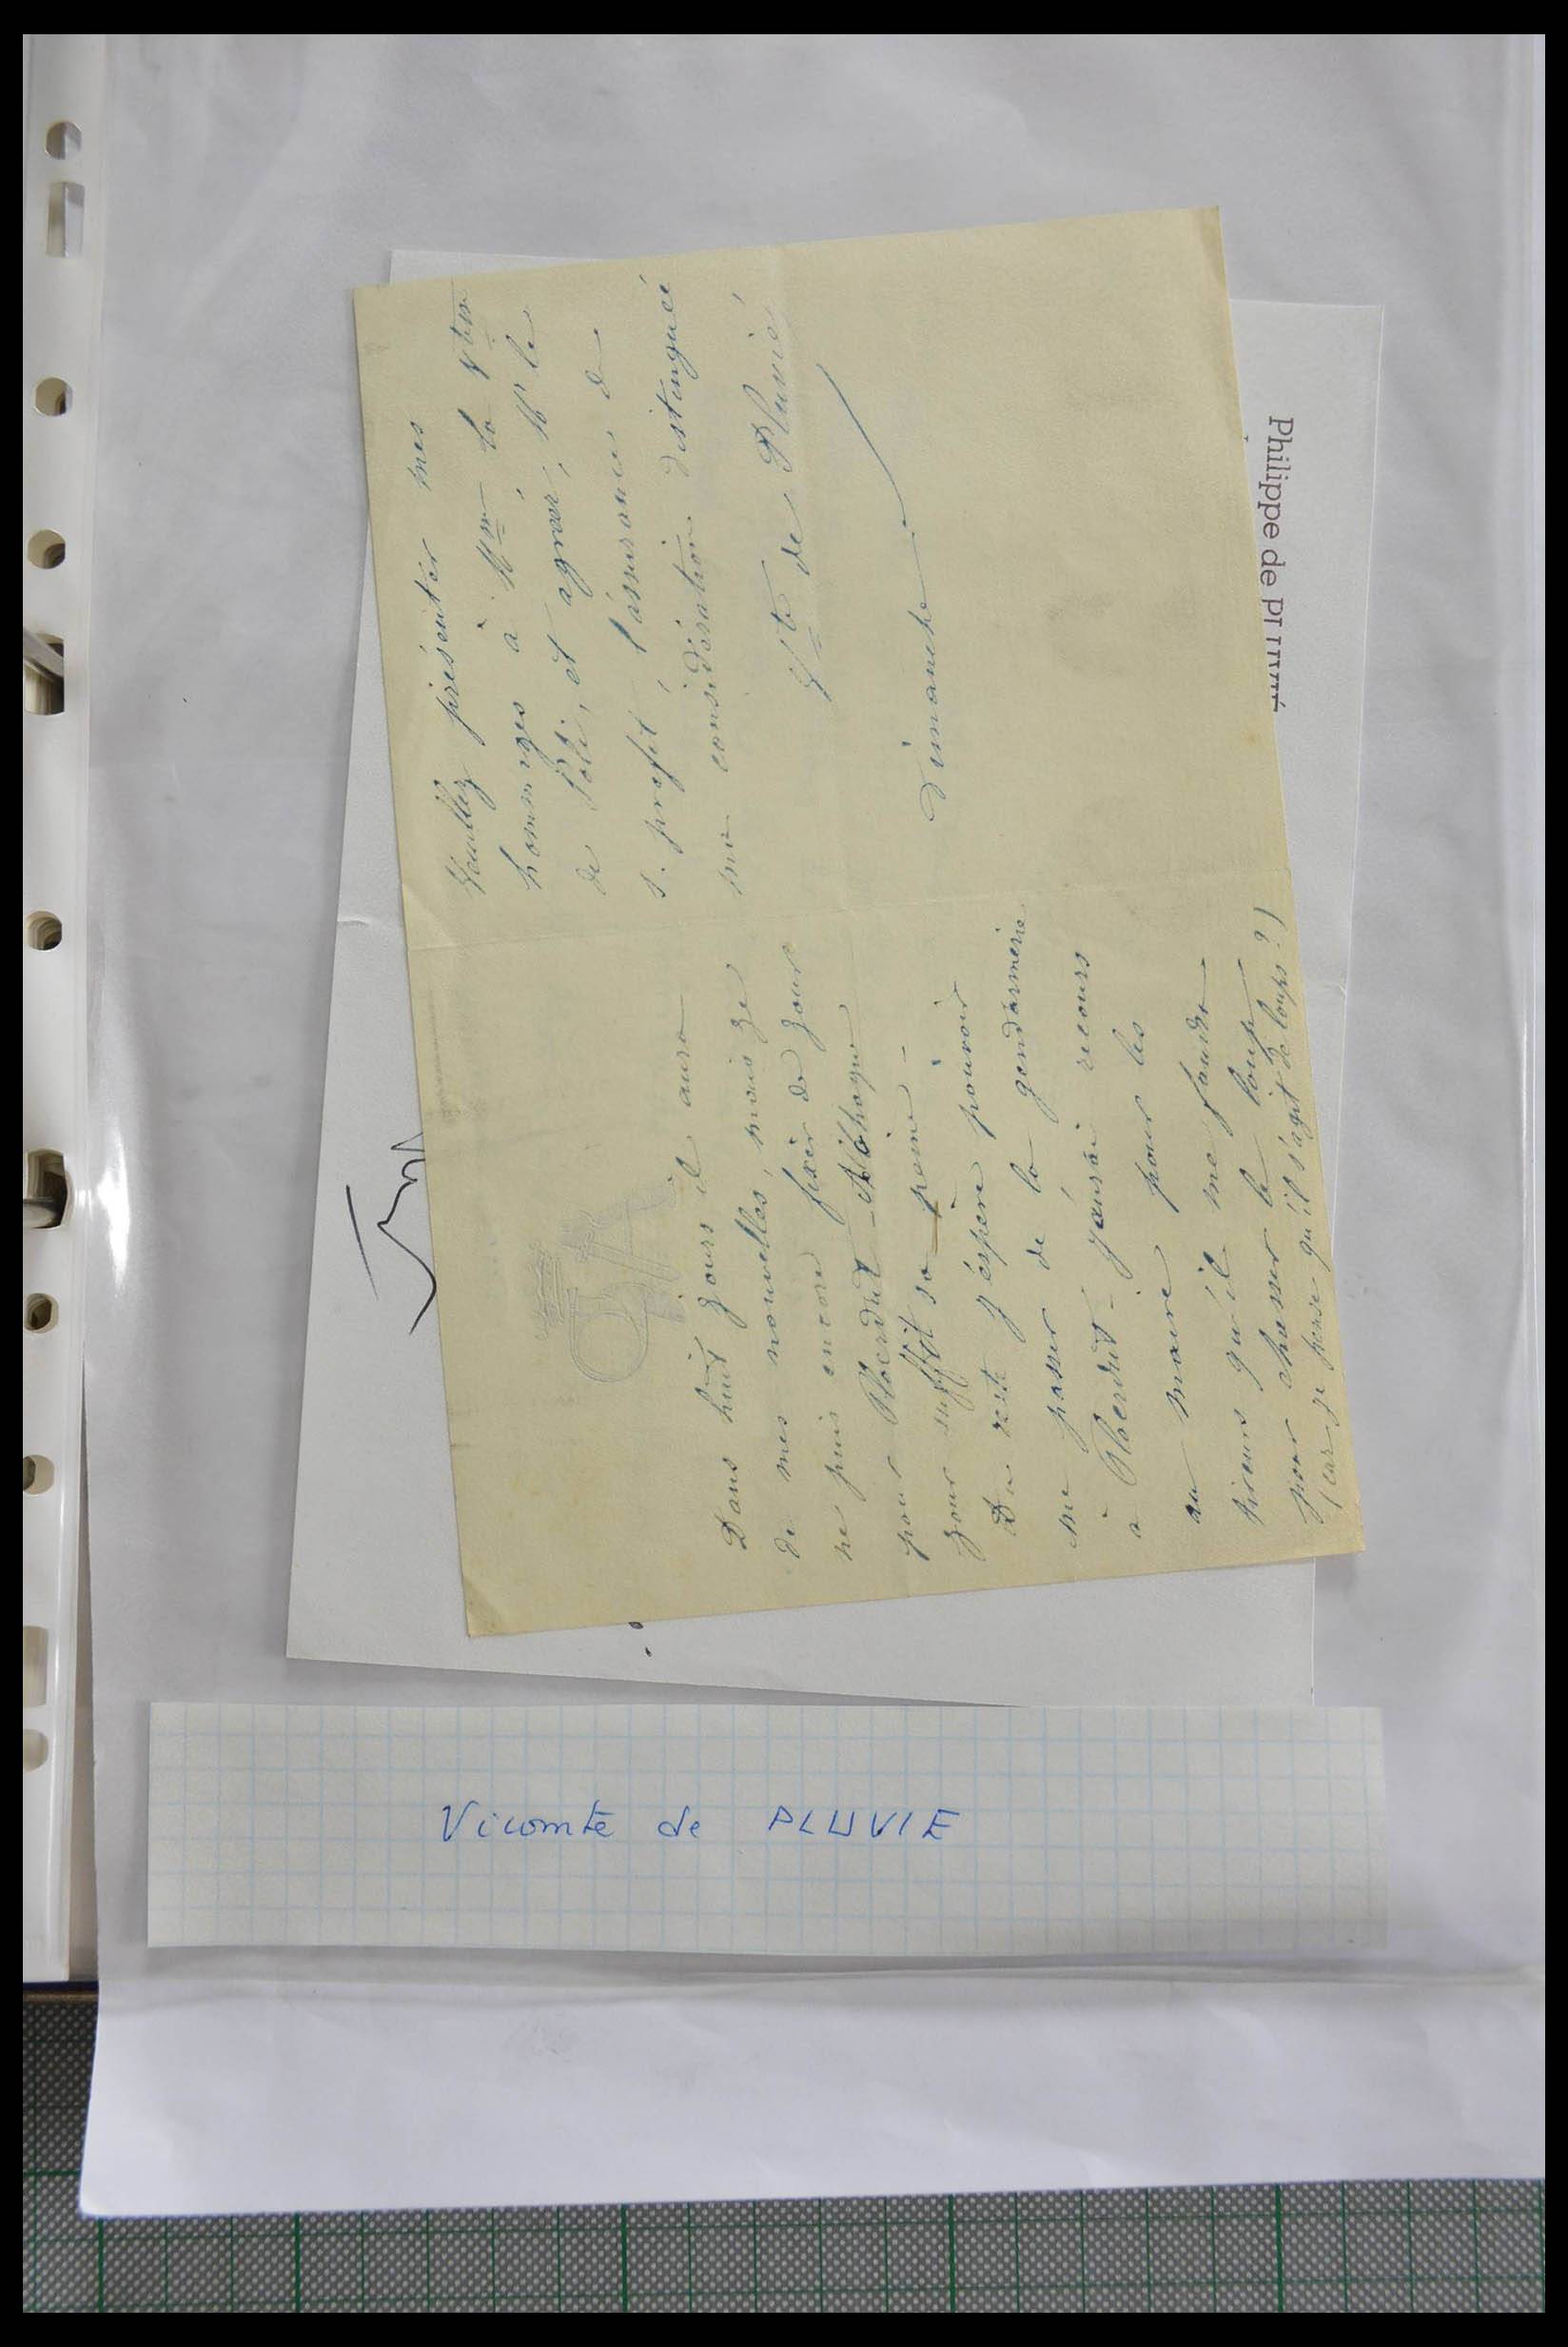 Dans huit jours il aura
de mes nouvelles, mais je
ne puis encore fixer de jour
pour Ploerdut
jour suffit sa peine -
Du reste j'espère pouvoir
me passer de la gendarmerie
à Ploerdut - j'aurai recours
au maire pour les
qu'il me faudra
pour chasser le loup
(car je pense qu'il s'agit de loups?)
Veuillez présenter mes
hommages à Mme la Vtesse
de Poli, et agréer, Mr le
s. préfet, l'assurance de
ma considération distinguée
Vte de Pluvié
Dimanche.
Philippe de PLUVIÉ
Vicomte de PLUVIE